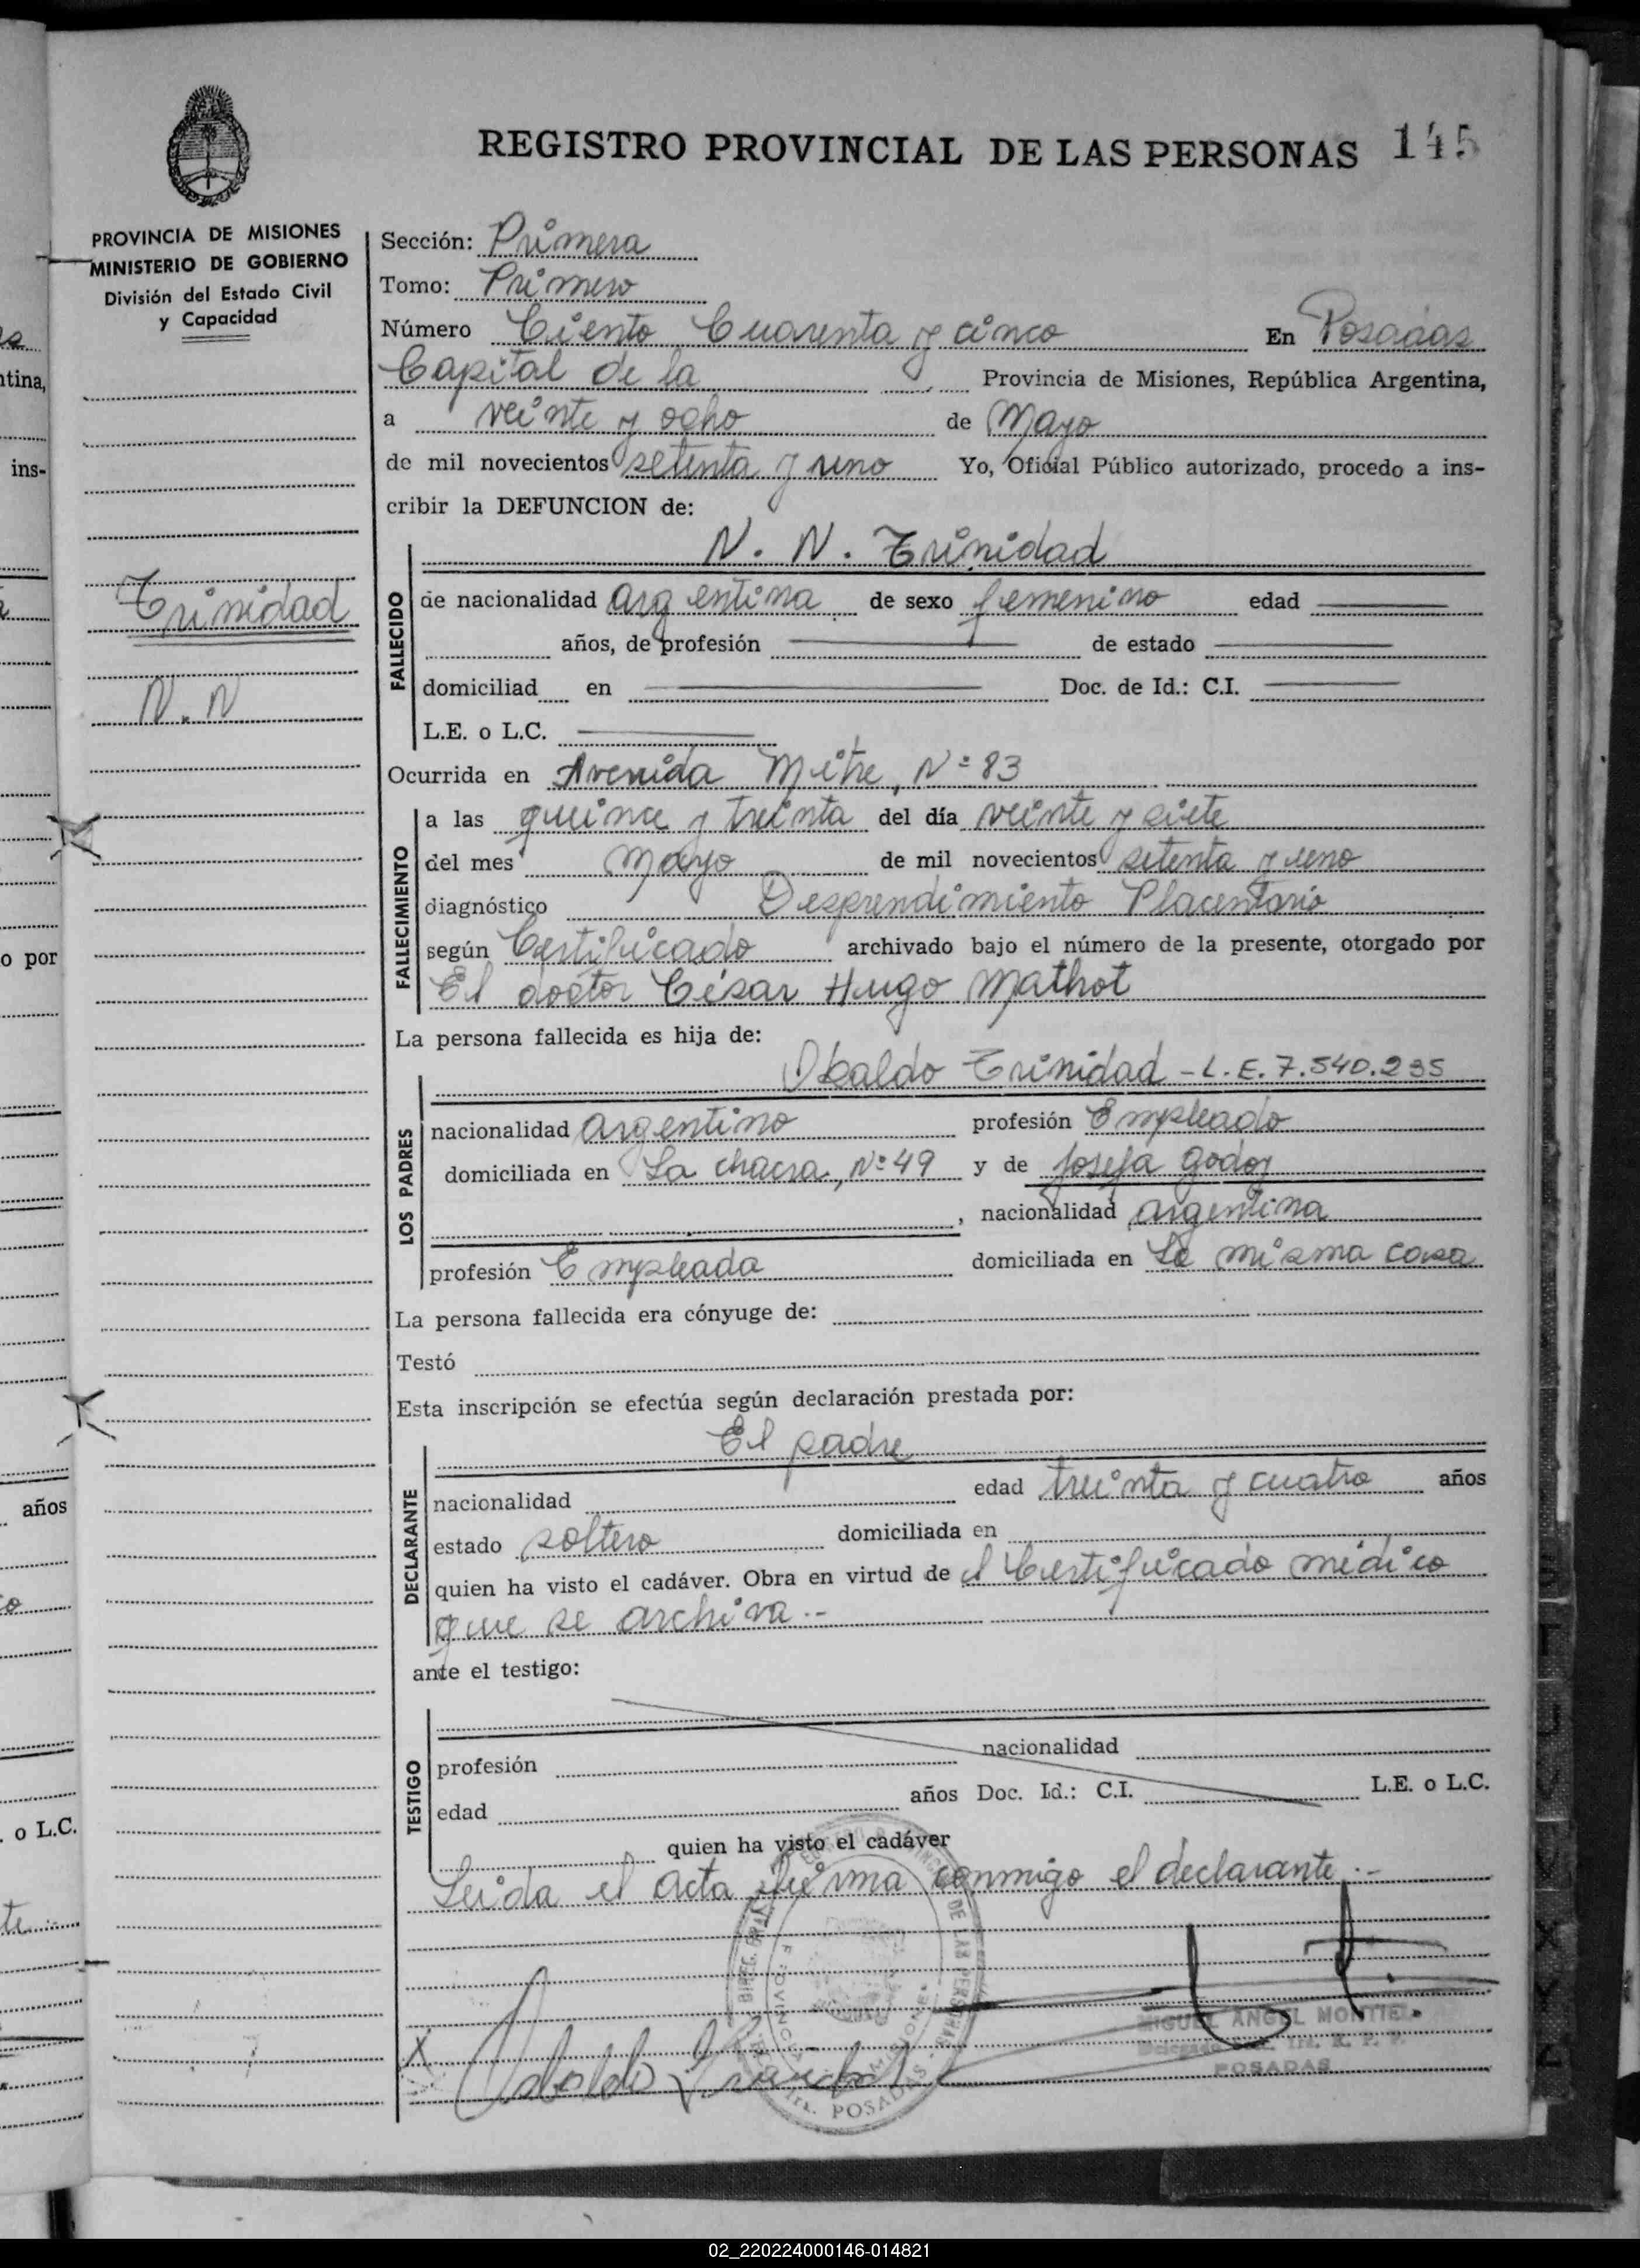 REGISTRO PROVINCIAL DE LAS PERSONAS 145
PROVINCIA DE MISIONES
MINISTERIO DE GOBIERNO
División del Estado Civil
y Capacidad
Trinidad
N. N
Sección: Primera
Tomo: Primero
Número Ciento Cuarenta y cinco En Posadas
Capital de la Provincia de Misiones, República Argentina,
a veinte y ocho de Mayo
de mil novecientos setenta y uno Yo, Oficial Público autorizado, procedo a ins-
cribir la DEFUNCION de:
N. N. Trinidad
FALLECIDO
de nacionalidad argentina de sexo femenino edad
años, de profesión de estado
domiciliad en Doc. de Id.: C.I.
L.E. o L.C.
Ocurrida en Avenida Mitre, Nº 83
FALLECIMIENTO
a las quince y treinta del día veinte y siete
del mes Mayo de mil novecientos setenta y uno
diagnóstico Desprendimiento Placentario
según Certificado archivado bajo el número de la presente, otorgado por
El doctor César Hugo Mathot
La persona fallecida es hija de:
LOS PADRES
Obaldo Trinidad - L.E. 7.540.235
nacionalidad argentino profesión Empleado
domiciliada en La chacra, Nº 49 y de Josefa Godoy
, nacionalidad argentina
profesión Empleada domiciliada en La misma casa
La persona fallecida era cónyuge de:
Testó
Esta inscripción se efectúa según declaración prestada por:
DECLARANTE
El padre
nacionalidad edad treinta y cuatro años
estado soltero domiciliada en
quien ha visto el cadáver. Obra en virtud de el Certificado médico
que se archiva.-
ante el testigo:
TESTIGO
profesión nacionalidad
edad años Doc. Id.: C.I. L.E. o L.C.
quien ha visto el cadáver
Leida el acta firma conmigo el declarante.-
MIGUEL ANGEL MONTIEL
POSADAS
X Obaldo Trinidad
ntina,
ins-
o por
años
. o L.C.
02_220224000146-014821